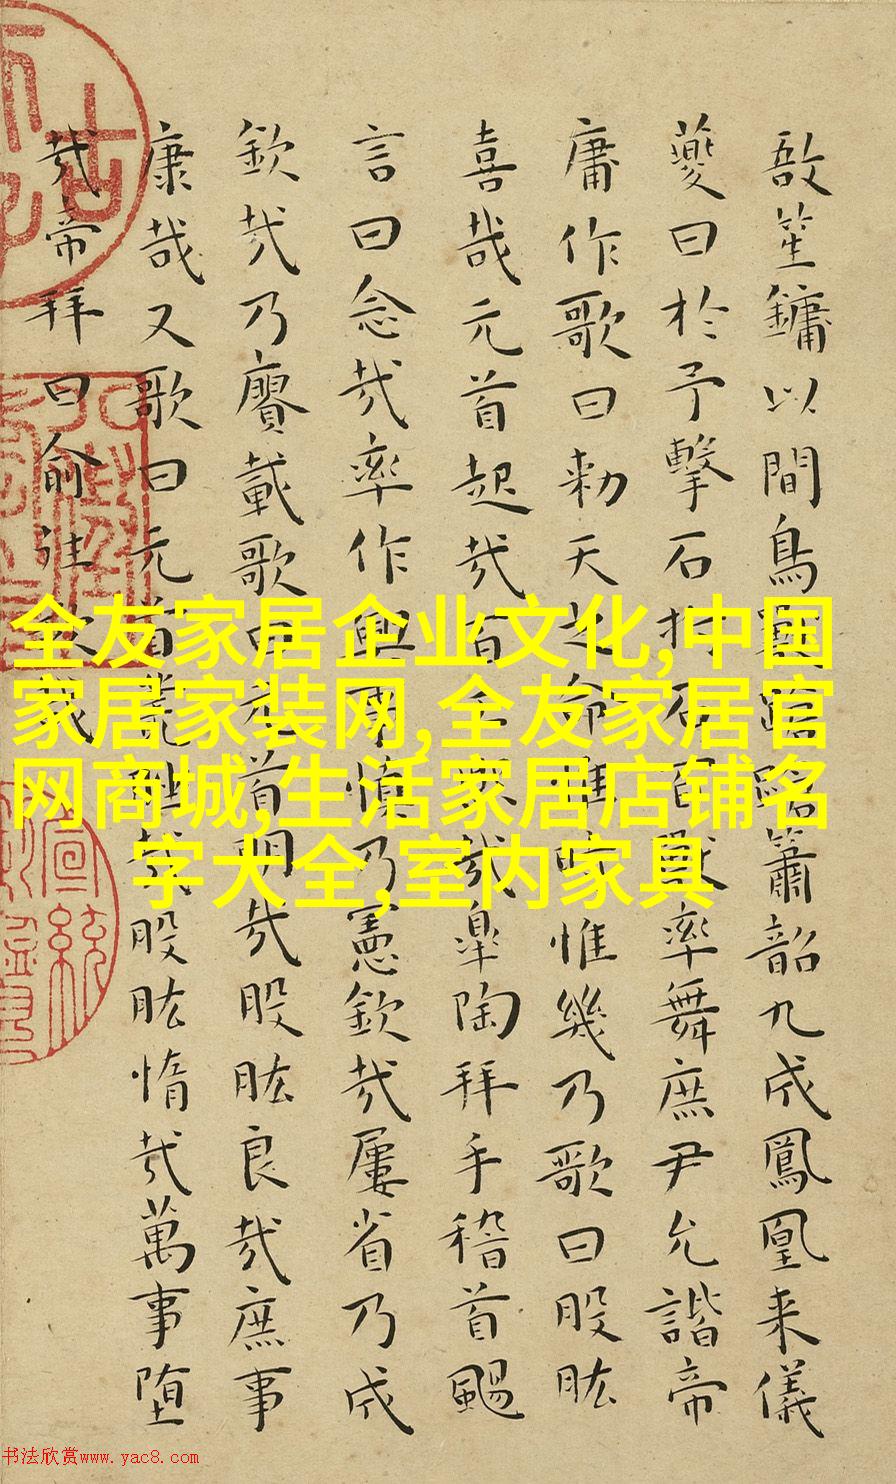 敔笙鏞以間鳥獸蹌蹌簫韶九成鳳凰来儀
夔曰於予擊石拊石百獸率舞庶尹允諧帝
庸作歌曰勑天之命惟時惟幾乃歌曰股肱
喜哉元首起哉百工熙哉皐陶拜手稽首颺
言曰念哉率作興事慎乃憲欽哉屢省乃成
欽哉乃賡載歌曰元首明哉股肱良哉庶事
康哉又歌曰元首叢脞哉股肱惰哉萬事堕
哉帝拜曰俞往欽哉
全友家居企业文化,中国
家居家装网,全友家居官
网商城,生活家居店铺名
字大全,室内家具
宣統
书法欣赏www.yac8.com